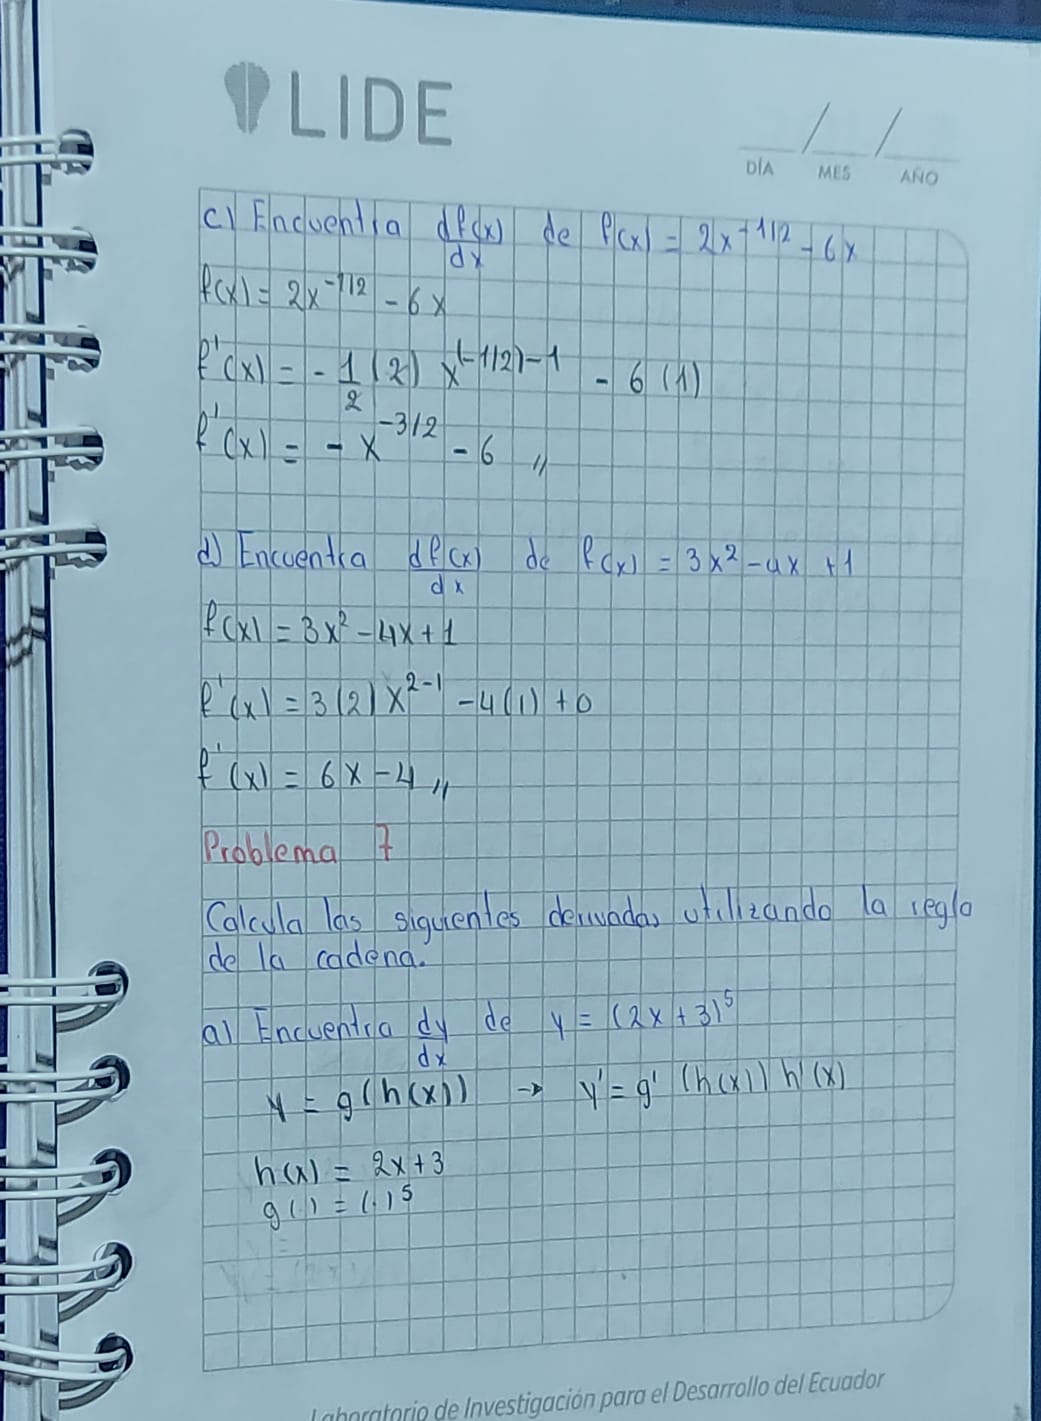 LIDE
/ /
DÍA MES AÑO
c) Encuentra df(x)/dx de f(x) = 2x^-1/2 - 6x
f(x) = 2x^-1/2 - 6x
f'(x) = - 1/2 (2) x^(-1/2)-1 - 6(1)
f'(x) = - x^-3/2 - 6 //
d) Encuentra df(x)/dx de f(x) = 3x² - 4x + 1
f(x) = 3x² - 4x + 1
f'(x) = 3(2)x^2-1 - 4(1) + 0
f'(x) = 6x - 4 //
Problema 7
Calcula las siguientes derivadas utilizando la regla
de la cadena.
a) Encuentra dy/dx de y = (2x + 3)^5
y = g(h(x)) → y' = g'(h(x)) h'(x)
h(x) = 2x + 3
g(.) = (.)^5
Laboratorio de Investigación para el Desarrollo del Ecuador